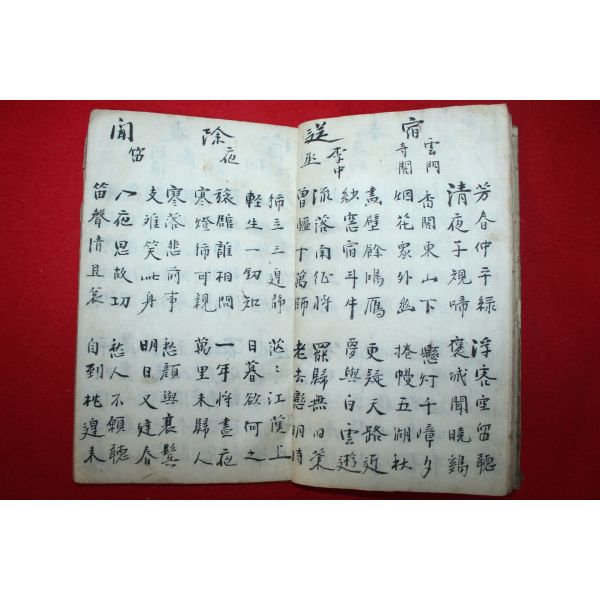 芳春仲平綠 浮客空留聽
清夜子規啼 褒城聞曉鷄
宿雲門寺閣
香閣東山下 懸灯千嶂夕
烟花象外幽 捲幔五湖秋
畵壁餘鴻鴈 更疑天路近
紗窓宿斗牛 夢與白雲遊
送李中丞
流落南征將 罷歸無旧業
曾驅十萬師 老去戀明時
独立三邊静 茫〻江漢上
輕生一釼知 日暮欲何之
除夜
旅館誰相問 一年將盡夜
寒燈独可親 萬里未歸人
寥落悲前事 愁顔與衰鬂
支離笑此身 明日又逢春
聞笛
入夜思故切 愁人不願聽
笛聲清且哀 自到枕邊来